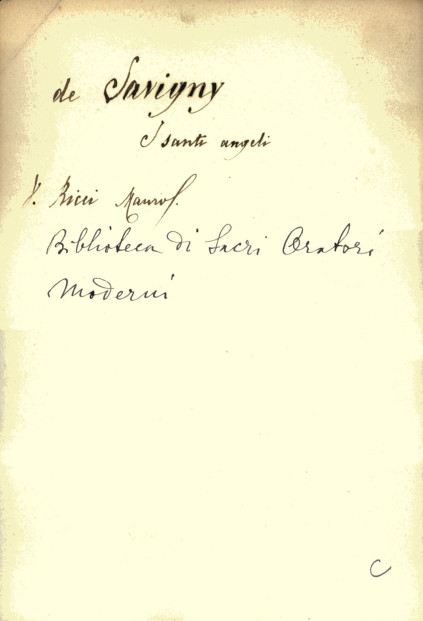 de Savigny
I santi angeli
V. Ricci Maurof.
Biblioteca di Sacri Oratori
Moderni
C